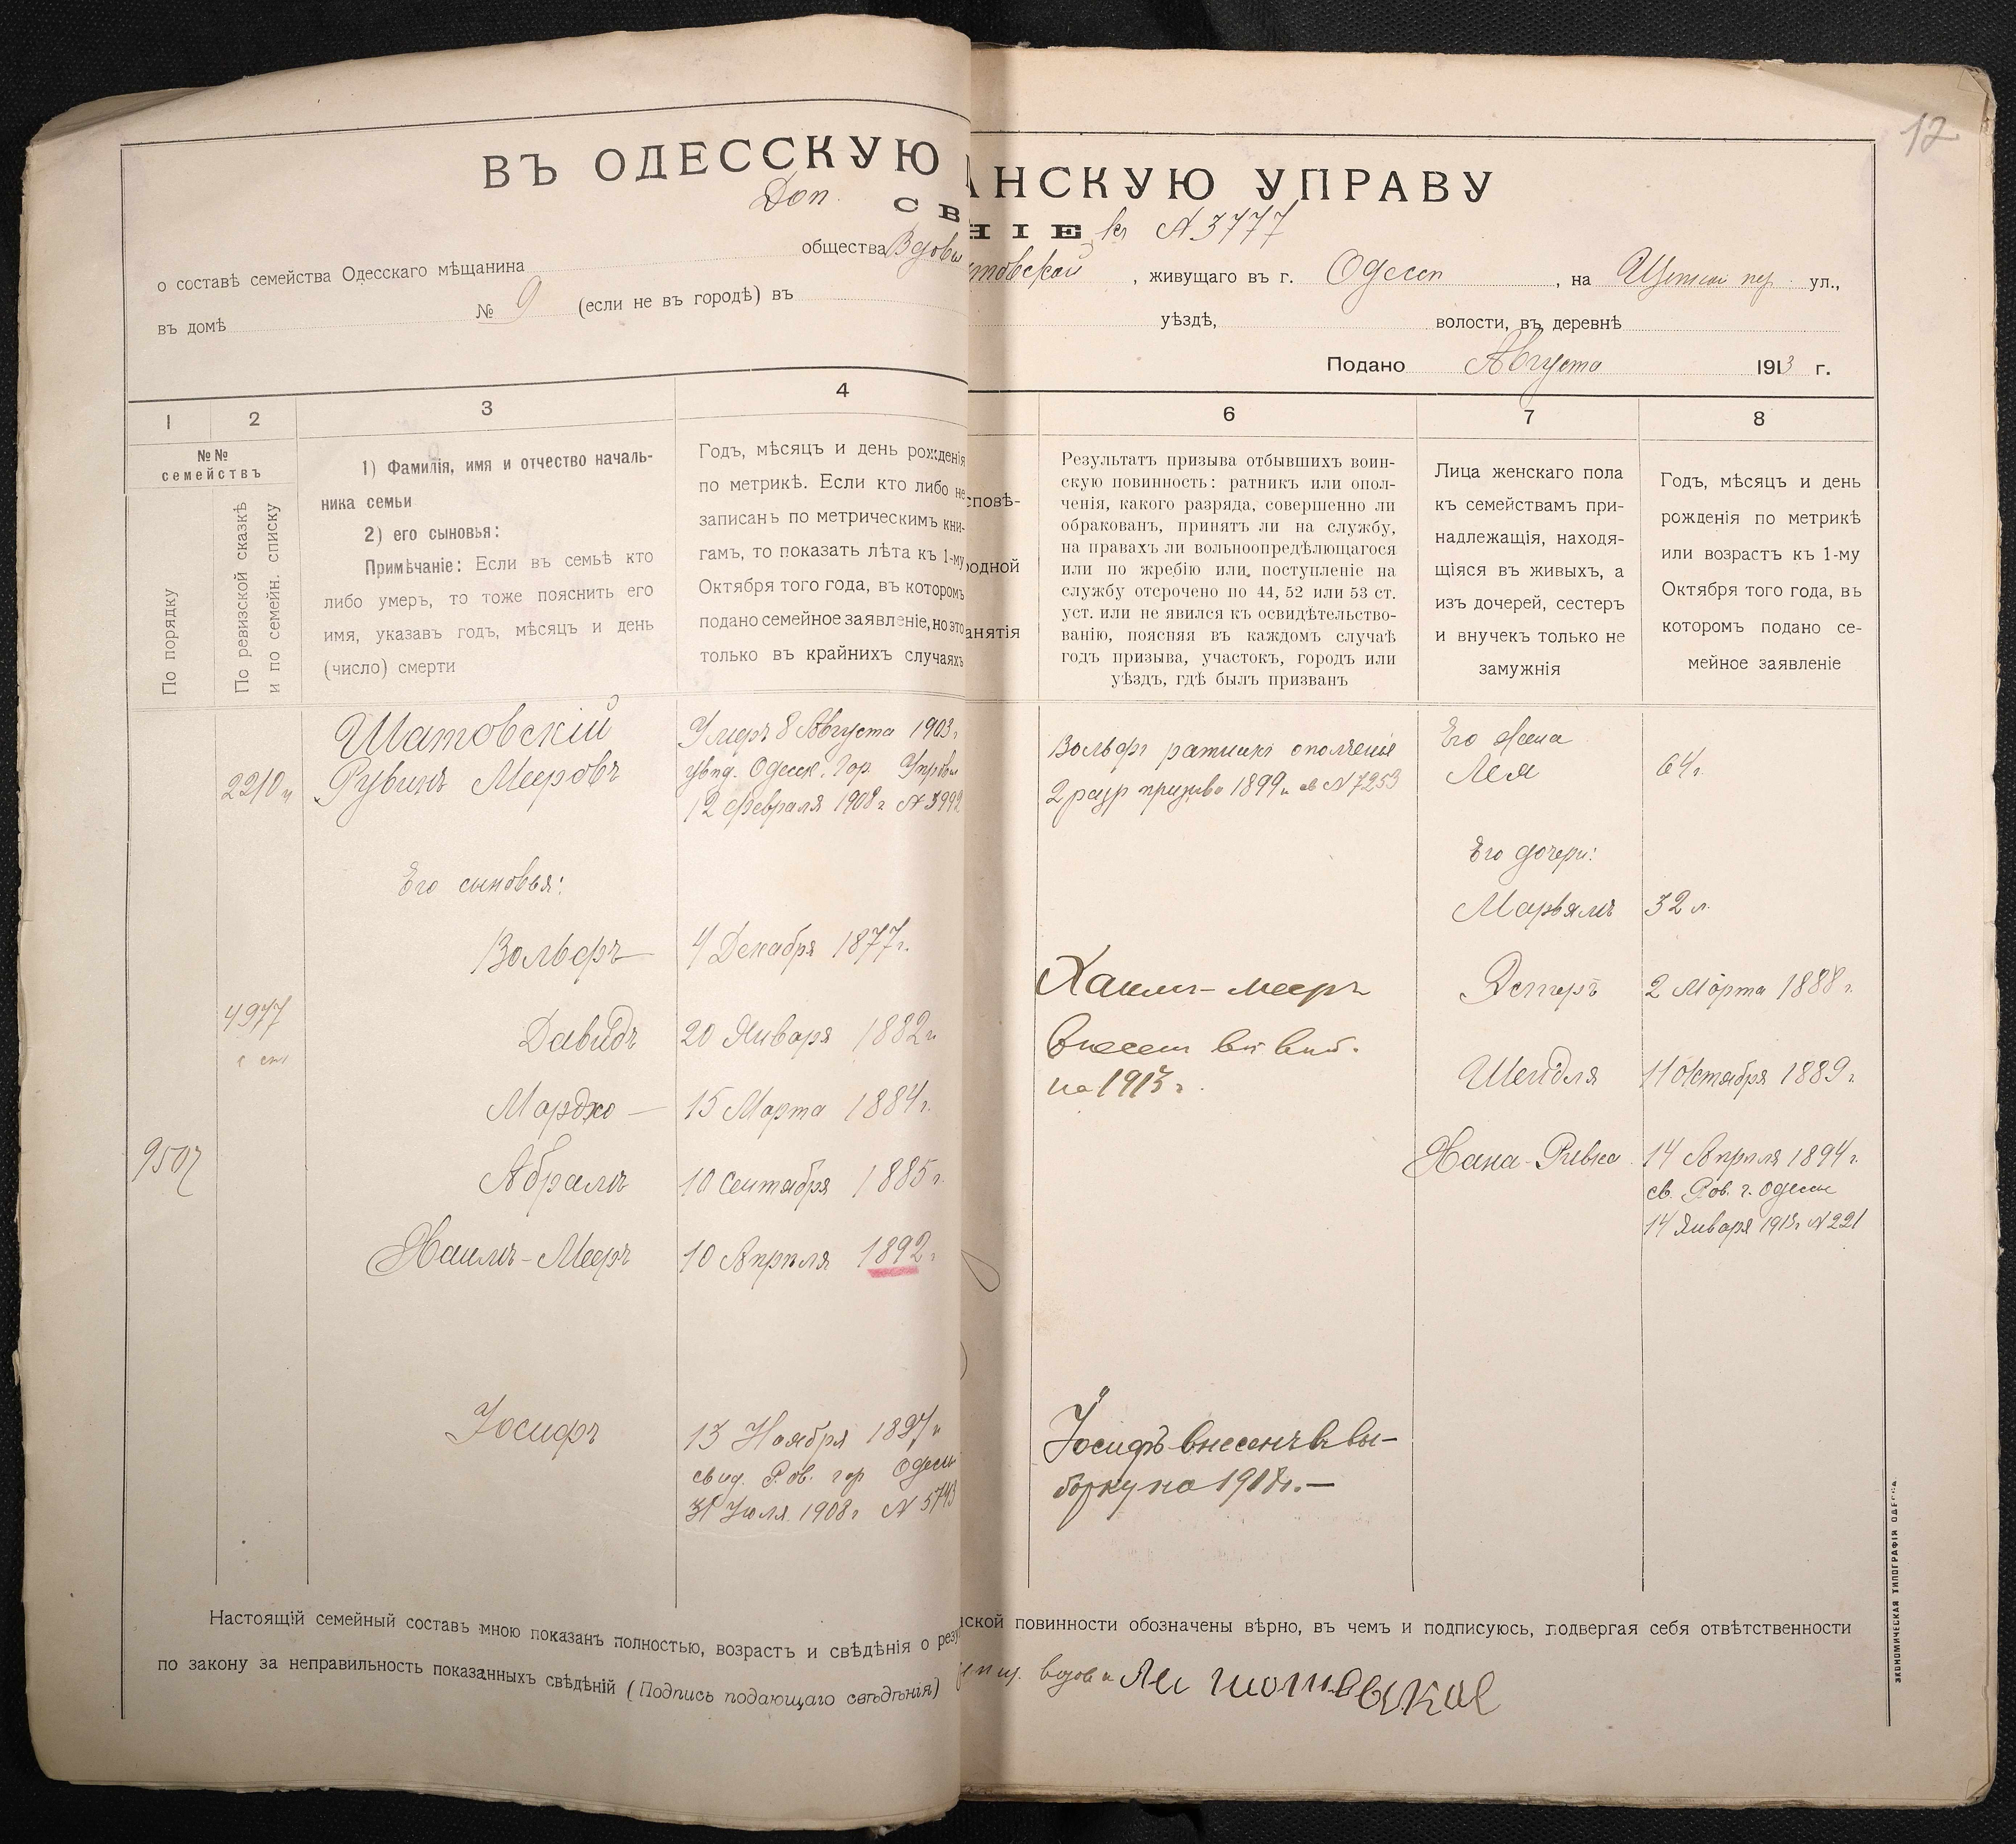 12
ВЪ ОДЕССКУЮ
АНСКУЮ УПРАВУ
Доп.
СВ
НІЕ къ № 3777
о составѣ семейства Одесскаго мѣщанина общества Вдовы
товской, живущаго въ г. Одессѣ, на Щепной пер. ул.,
въ домѣ № 9 (если не въ городѣ) въ
уѣздѣ, волости, въ деревнѣ
Подано Августа 1913 г.
1 2 3 4
6 7 8
№№ семействъ
По порядку
По ревизской сказкѣ
и по семейн. списку
1) Фамилія, имя и отчество началь-
ника семьи
2) его сыновья:
Примѣчаніе: Если въ семьѣ кто
либо умеръ, то тоже пояснить его
имя, указавъ годъ, мѣсяцъ и день
(число) смерти
Годъ, мѣсяцъ и день рожденія
по метрикѣ. Если кто либо не
записанъ по метрическимъ кни-
гамъ, то показать лѣта къ 1-му
Октября того года, въ которомъ
подано семейное заявленіе, но это
только въ крайнихъ случаяхъ
споѣ-
родной
анятія
Результатъ призыва отбывшихъ воин-
скую повинность: ратникъ или опол-
ченія, какого разряда, совершенно ли
обракованъ, принятъ ли на службу,
на правахъ ли вольноопредѣлющагося
или по жребію или, поступленіе на
службу отсрочено по 44, 52 или 53 ст.
уст. или не явился къ освидѣтельство-
ванію, поясняя въ каждомъ случаѣ
годъ призыва, участокъ, городъ или
уѣздъ, гдѣ былъ призванъ
Лица женскаго пола
къ семействамъ при-
надлежащія, находя-
щіяся въ живыхъ, а
изъ дочерей, сестеръ
и внучекъ только не
замужнія
Годъ, мѣсяцъ и день
рожденія по метрикѣ
или возрастъ къ 1-му
Октября того года, въ
котором подано се-
мейное заявленіе
Шатовскій
2210
Рувинъ Мееровъ
Умеръ 8 Августа 1903 г
Одесск. Гор. Управы
12 Февраля 1908 г №
Вольфъ ратникъ ополченія
2 разр призыва 1899 г № 7253
Его жена
Лея 64 г.
Его дочери:
Марьямъ 32 л.
Его сыновья:
Вольфъ — 4 Декабря 1877 г.
Эстеръ 2 Марта 1888 г.
4977
Давидъ 20 Января 1882 г.
Хаимъ-Мееръ
внесенъ въ выб.
на 1913 г.
Шейдля 11 Октября 1889 г.
Мордко — 15 Марта 1884 г.
9507
Абрамъ 10 Сентября 1885 г.
Хана-Ривка 14 Апрѣля 1894 г.
св. Рав. г. Одессы
14 Января 1913 г № 221
Хаимъ-Мееръ 10 Апрѣля 1892 г.
Іосифъ 13 Ноября 1897 г
свид. Рав. гор Одессы
31 Іюля 1908 г № 5743
Іосифъ внесенъ въ вы-
борку на 1918 г. —
Настоящій семейный составъ мною показанъ полностью, возрастъ и свѣдѣнія о рез
ской повинности обозначены вѣрно, въ чемъ и подписуюсь, подвергая себя отвѣтственности
по закону за неправильность показанныхъ свѣдѣній (Подпись подающаго свѣдѣнія)
вдова
ЭКОНОМИЧЕСКАЯ ТИПОГРАФІЯ ОДЕССА.